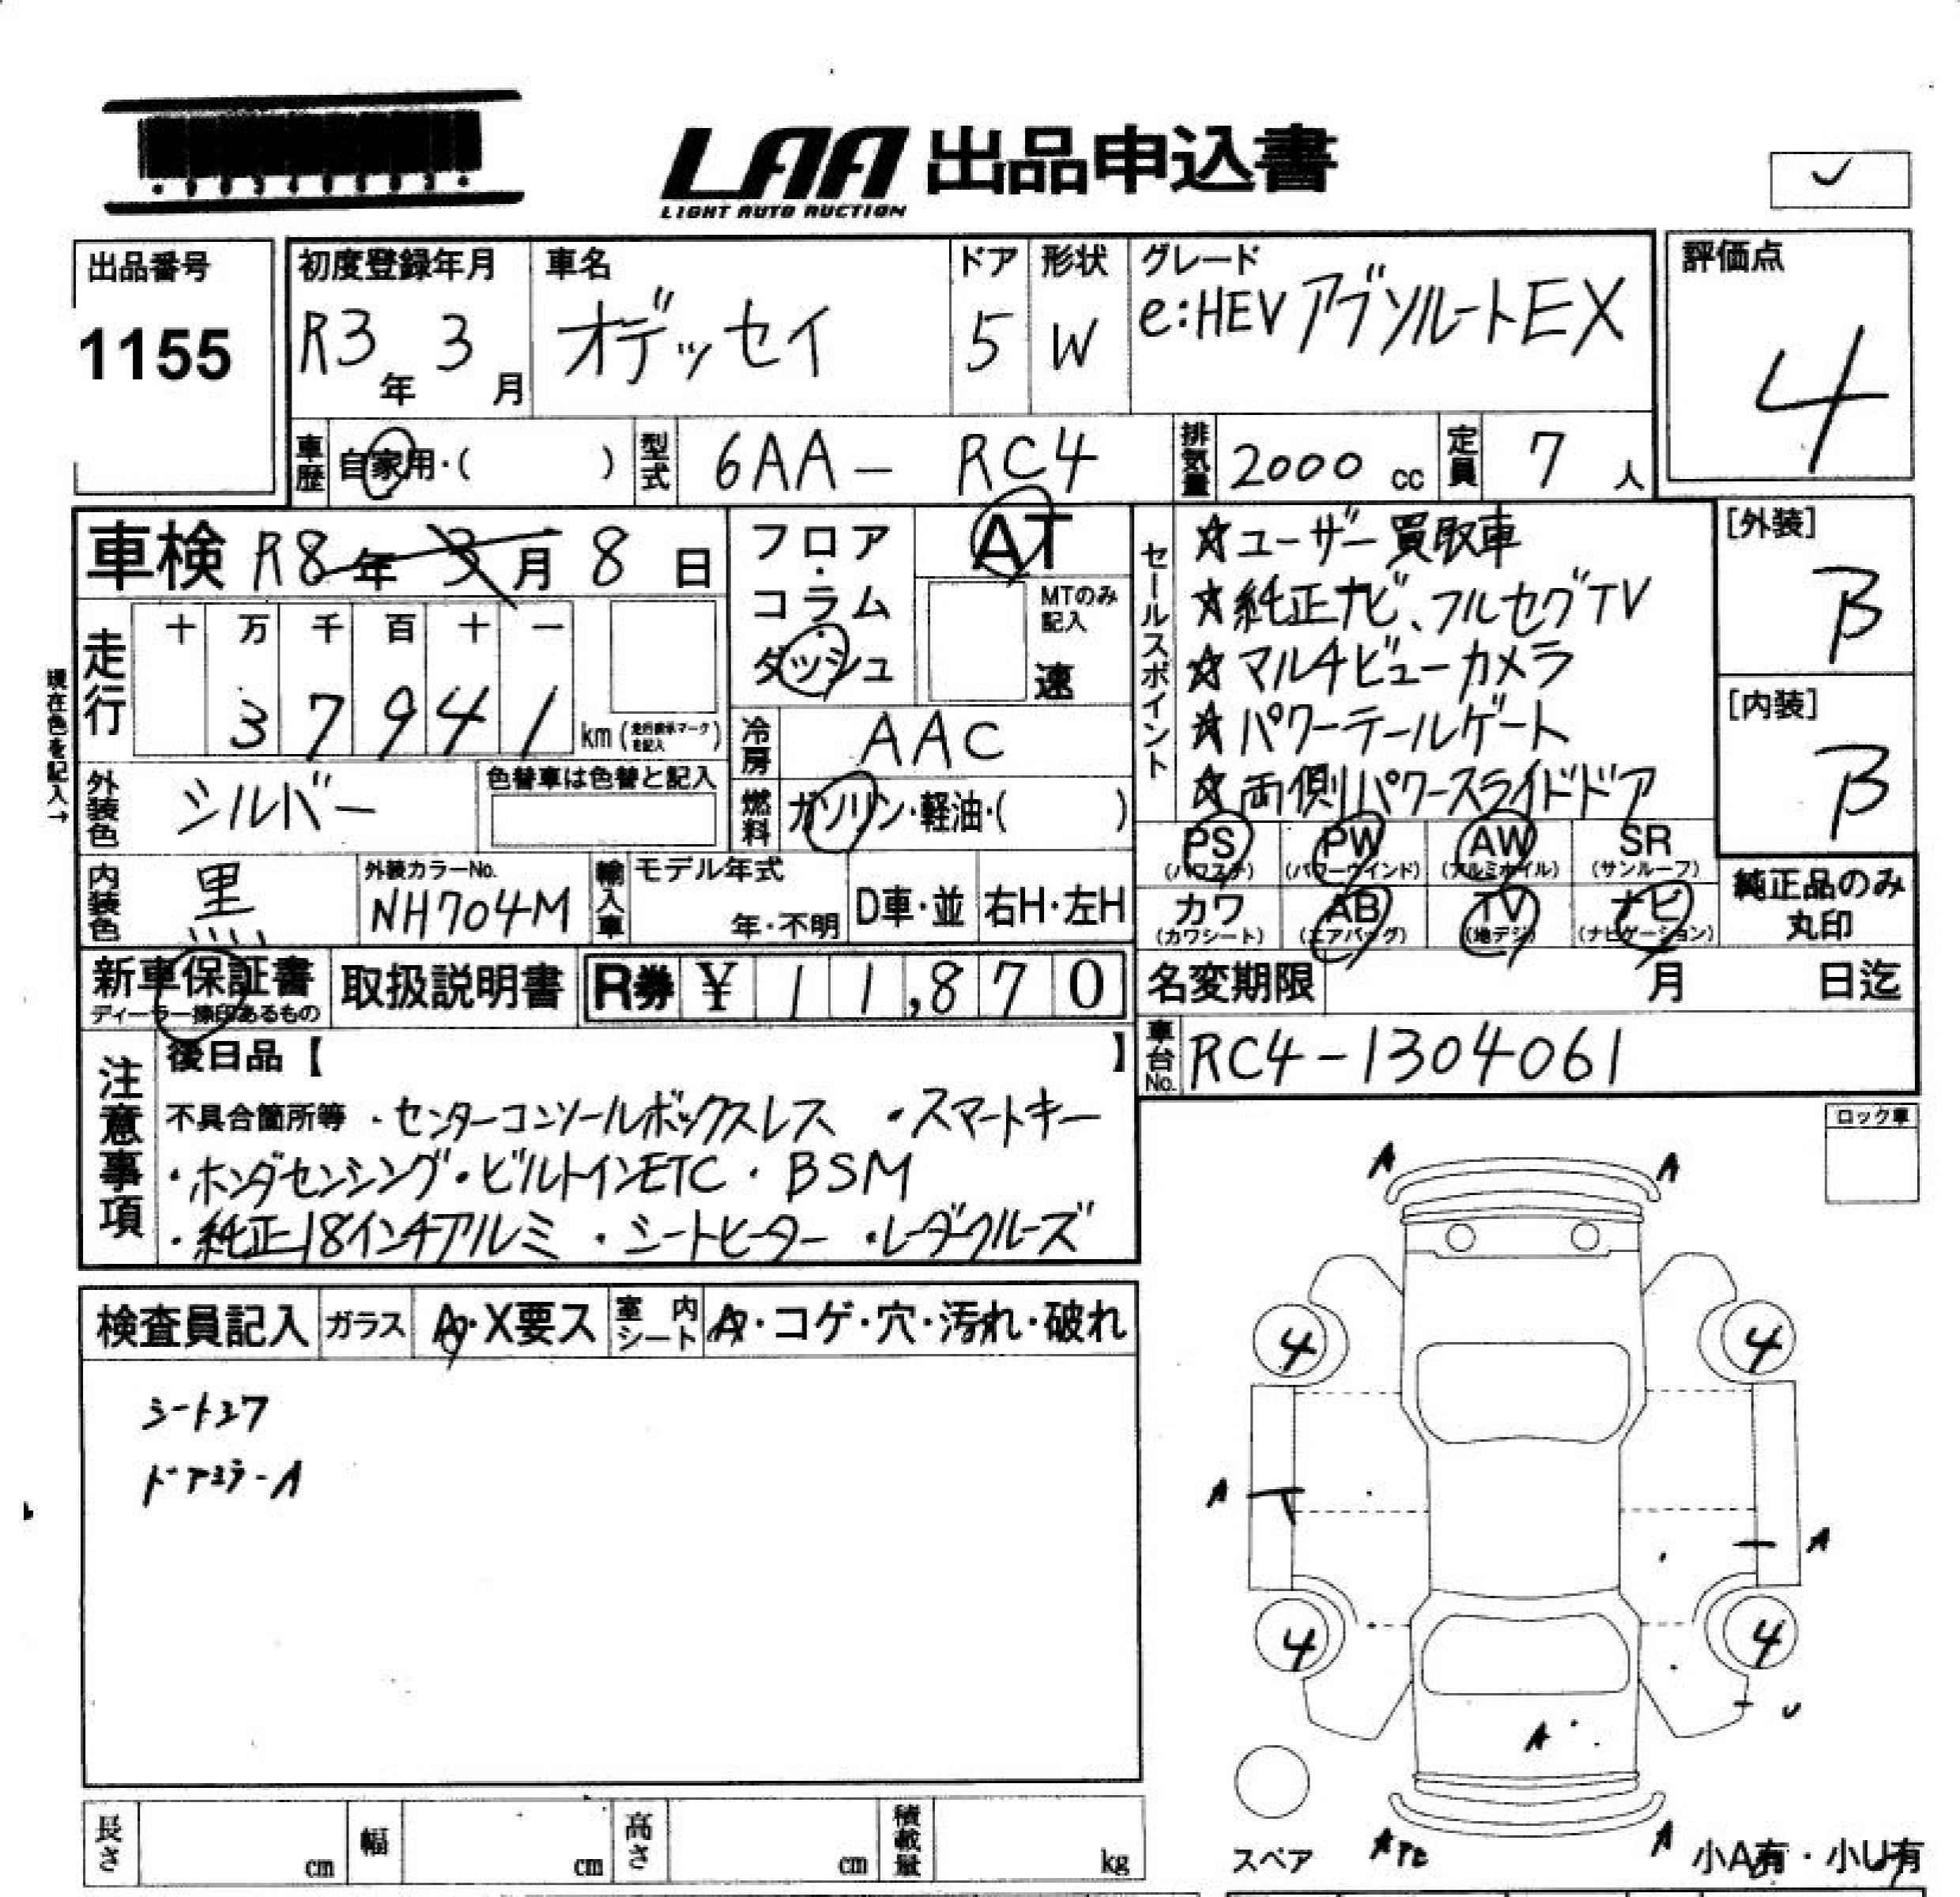 LAA 出品申込書
LIGHT AUTO AUCTION
出品番号
1155
初度登録年月
R3年 3月
車名
オデッセイ
ドア
5
形状
W
グレード
e:HEVアブソルートEX
評価点
4
車歴 自家用・( )
型式 6AA - RC4
排気量 2000 cc
定員 7 人
車検 R8年 3月 8日
フロア・コラム・ダッシュ
AT
MTのみ記入
速
セールスポイント
☆ユーザー買取車
☆純正ナビ、フルセグTV
☆マルチビューカメラ
☆パワーテールゲート
☆両側パワースライドドア
[外装]
B
[内装]
B
走行
十 万 千 百 十 一
3 7 9 4 1 km
現在色を記入→
冷房 AAC
外装色 シルバー
色替車は色替と記入
燃料 ガソリン・軽油・( )
PS PW AW SR
(パワステ) (パワーウインド) (アルミホイル) (サンルーフ)
カワ AB TV ナビ
(カワシート) (エアバッグ) (地デジ) (ナビゲーション)
純正品のみ丸印
内装色 黒
外装カラーNo.
NH704M
輸入車 モデル年式
年・不明
D車・並 右H・左H
新車保証書
ディーラー捺印あるもの
取扱説明書
R券 ¥ 11,870
名変期限 月 日迄
車台No. RC4-1304061
注意事項
後日品【 】
不具合箇所等 ・センターコンソールボックスレス ・スマートキー
・ホンダセンシング・ビルトインETC・BSM
・純正18インチアルミ ・シートヒーター ・レーダクルーズ
ロック車
検査員記入 ガラス A・X要ス 室内シート A・コゲ・穴・汚れ・破れ
ドアミラーA
A A
4 4
A A
4 4
U
A
A A
スペア
小A有・小U有
長さ cm 幅 cm 高さ cm 積載量 kg